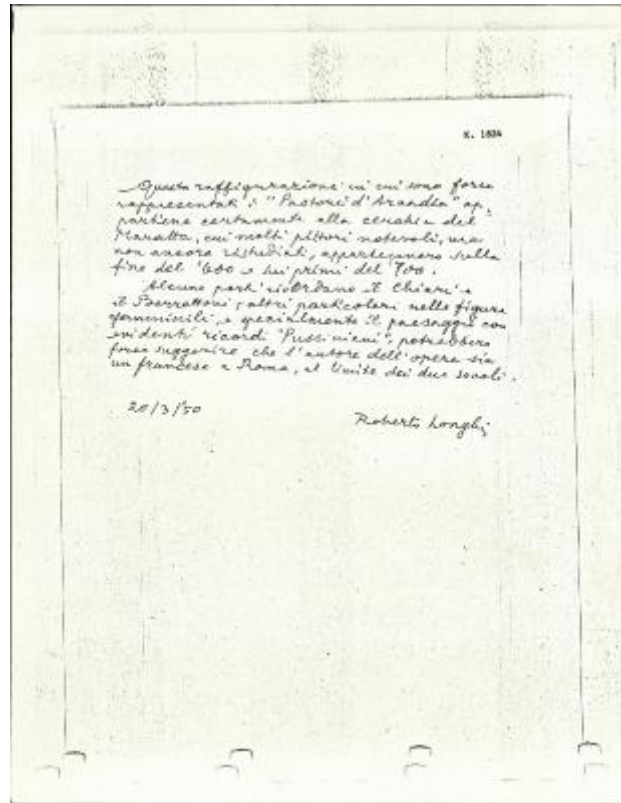 K. 1834
Questa raffigurazione in cui sono forse
rappresentati i "Pastori d'Arcadia" ap-
partiene certamente alla cerchia del
Maratta, cui molti pittori notevoli, ma
non ancora ristudiati, appartennero sulla
fine del '600 e sui primi del '700.
Alcune parti ricordano il Chiari e
il Berrettoni; altri particolari nelle figure
femminili, e specialmente il paesaggio con
evidenti ricordi "Pussiniani", potrebbero
forse suggerire che l'autore dell'opera sia
un francese a Roma, al limite dei due secoli.
20/3/50
Roberto Longhi